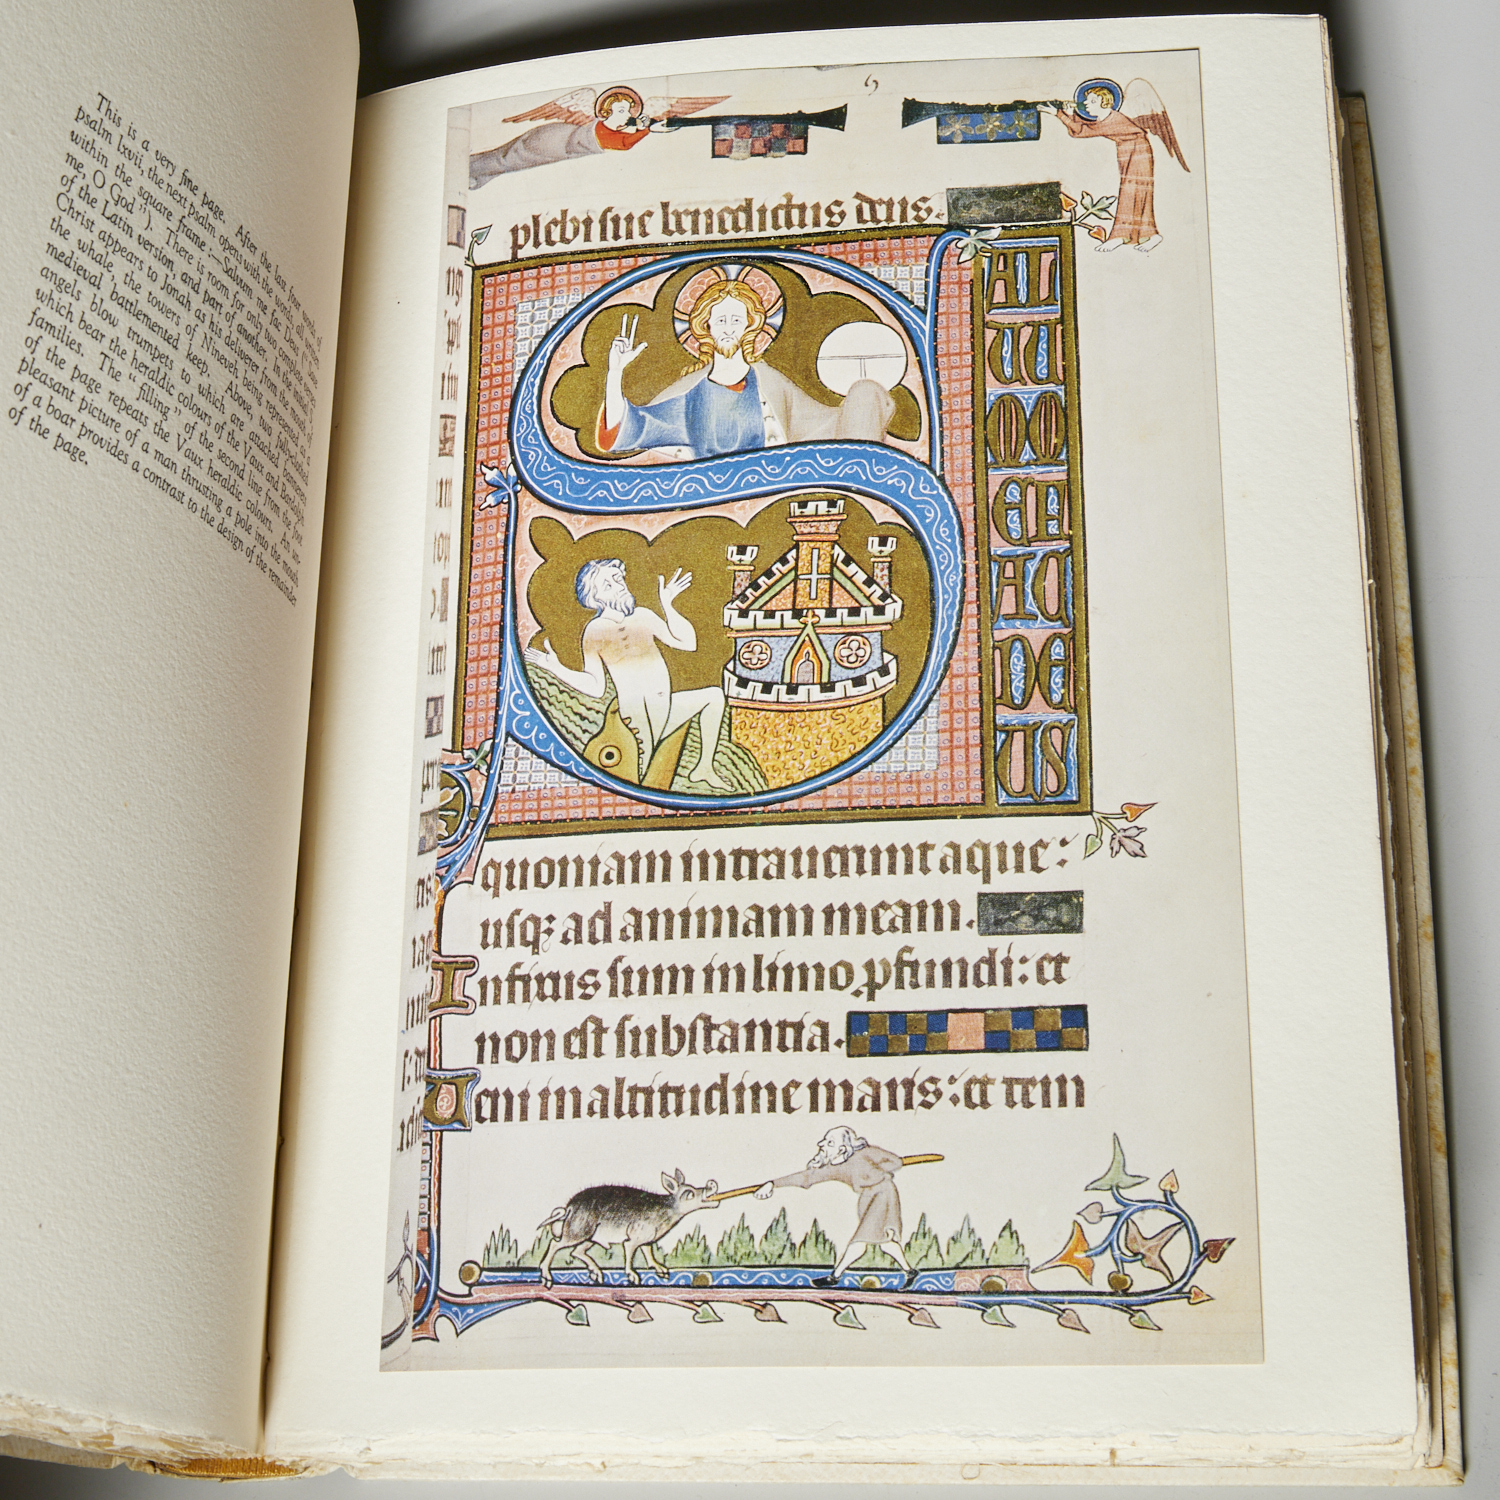 This is a very fine page. After the last four words of
psalm lxvii, the next psalm opens with the words, all written
within the square frame:—Salvum me fac Deus ("Save
me, O God"). There is room for only two complete verses
of the Latin version, and part of another. In the initial S,
Christ appears to Jonah as his deliverer from the mouth of
the whale, the towers of Nineveh being represented as a
medieval battlemented keep. Above, two full-length
angels blow trumpets to which are attached banners
which bear the heraldic colours of the Vaux and Bardolph
families. The "filling" of the second line from the foot
of the page repeats the Vaux heraldic colours. An un-
pleasant picture of a man thrusting a pole into the mouth
of a boar provides a contrast to the design of the remainder
of the page.
plebi sue benedictus deus.
S
AL
UU
M
ME
FA
C
DE
US
quoniam intraverunt aque:
usqꝫ ad animam meam.
Infixus sum in limo ꝓfundi: et
non est substantia.
Veni in altitudine maris: et tem